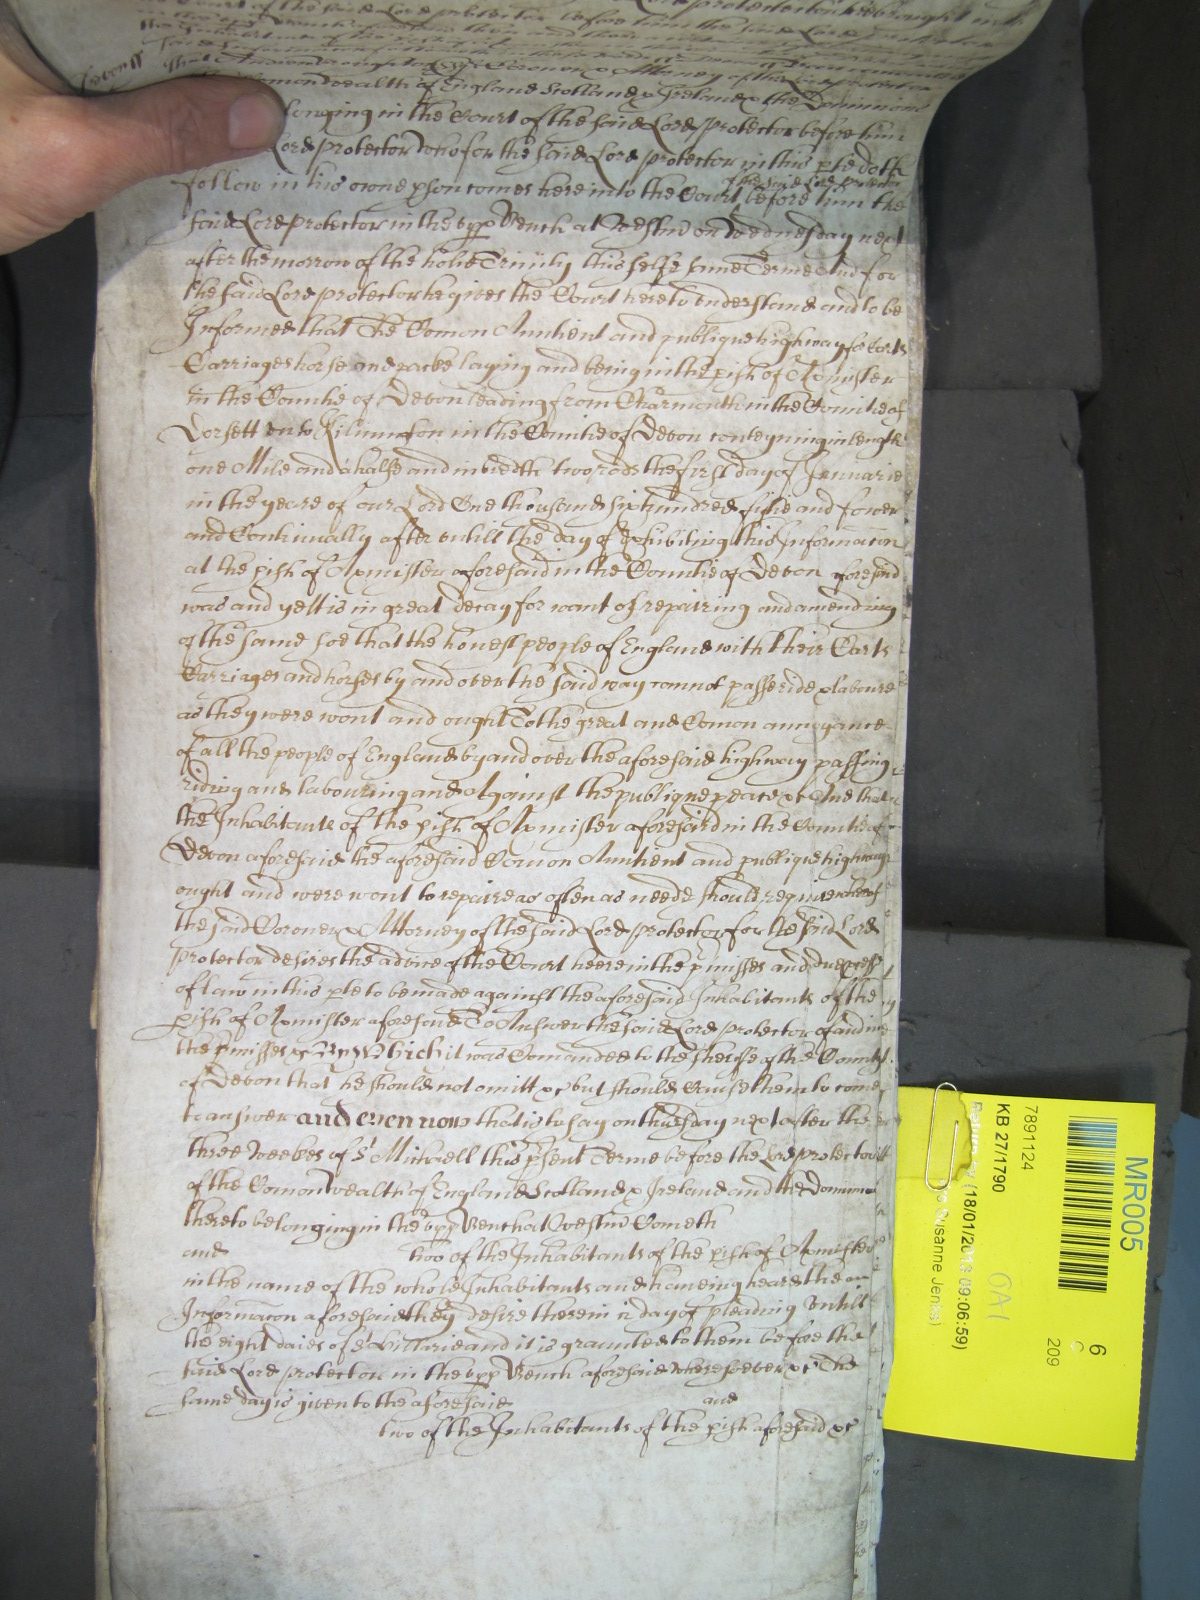 Devon ss
Comonwealth of England Scotland & Ireland & the Dominions
belonging in the Court of the said Lord protector before him
Lord protector who for the said Lord protector in this ple doth
follow in his owne pson comes here into the Court of the said Lord protector before him the
said Lord protector in the vpp Bench at Westm̄ on Wednesday next
after the morrow of the holie Trinity this selfe same Terme And for
the said Lord protector he gives the Court here to vnderstand and to be
Informed that the Comon Auntient and publique high way for Carts
Carriages horse and packe laying and being in the pish of Axmister
in the Countie of Devon leading from Charmouth in the Countie of
Dorsett vnto Kilmington in the Countie of Devon conteyning in length
one Mile and a halfe and in bredth two rods the first day of Januarie
in the yeare of our Lord One thousand six hundred fiftie and fower
and Continually after vntill the day of Exhibiting this Informacon
at the pish of Axmister aforesaid in the Countie of Devon aforesaid
was and yett is in great decay for want of repairing and amending
of the same soe that the honest people of England with their Carts
Carriages and horses by and over the said way cannot passe ride & laboure
as they were wont and ought To the great and Comon annoyance
of all the people of England by and over the aforesaid highway passing
riding and labouring and Against the publique peace &c And that
the Inhabitants of the pish of Axmister aforesaid in the Countie of
Devon aforesaid the aforesaid Comon Auntient and publique highway
ought and were wont to repaire as often as neede should require whereof
the said Coroner & Attorney of the said Lord protector for the said Lord
protector desires the advice of the Court heere in the pmisses and due pcesse
of law in this ple to be made against the aforesaid Inhabitants of the
pish of Axmister aforesaid To Answer the said Lord protector of and in
the pmisses &c By Which it was Comanded to the sheriffe of the County
of Devon that he should not omitt &c but should Cause them to come
to answer and even now that is to say on thursday next after the
three weekes of St Michaell this psent Terme before the Lord protector
of the Comonwealth of England Scotland & Ireland and the Dominions
thereto belonging in the vpp Bench at Westm̄ Cometh
and two of the Inhabitants of the pish of Axmister
in the name of the whole Inhabitants and haveing heard the
Informacon aforesaid they desire therein a day of pleading vntill
the eight daies of St Hillarie and it is graunted to them before the
said Lord protector in the vpp Bench aforesaid wheresoever &c The
same day is given to the aforesaid and
two of the Inhabitants of the pish aforesaid &c
MR005
6
C
209
7891124
KB 27/1790
(18/01/2013 09:06:59)
Susanne Jenks)